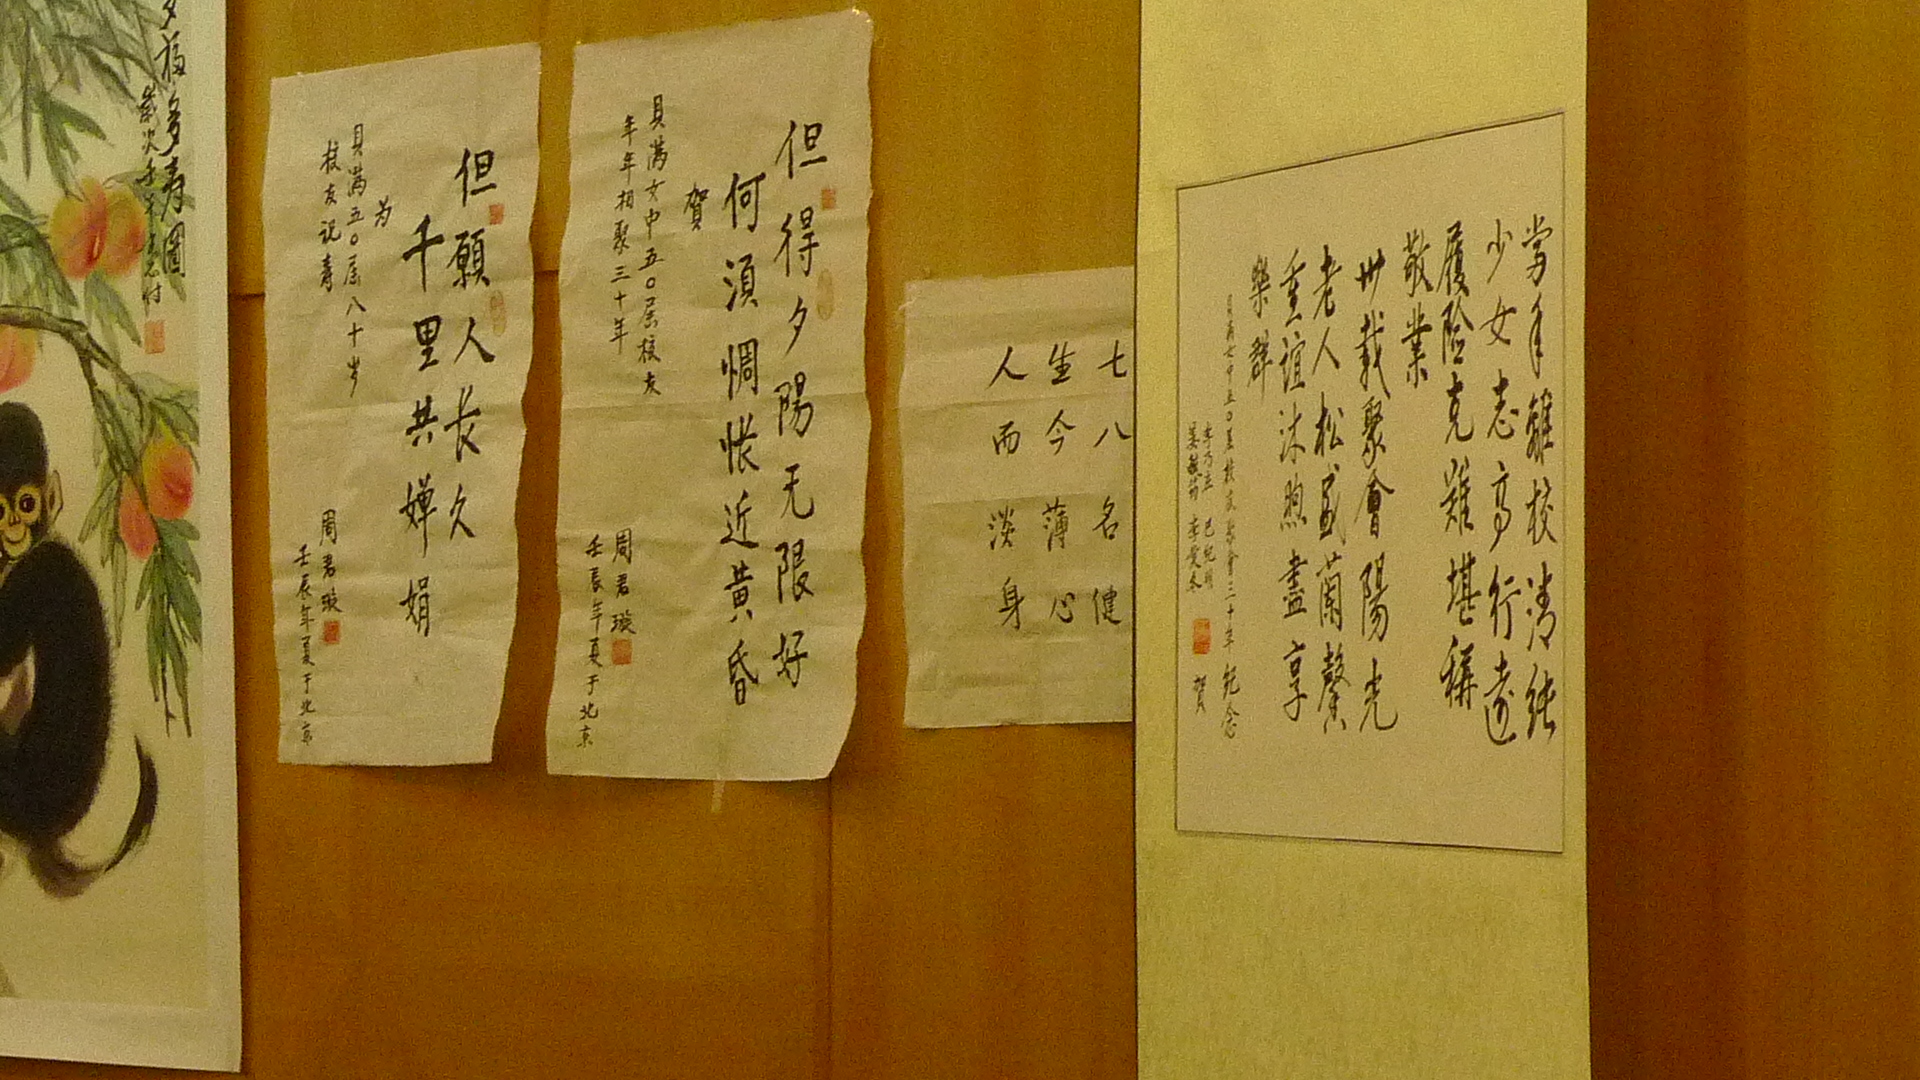 當年離校清純
少女志高行遠
履险克难堪稱
敬業
卅載聚會陽光
老人松盛蘭馨
重誼沐煦盡享
樂群
貝满女中五〇届校友聚會三十年 紀念
賀
七八名健
生今薄心
人而淡身
但得夕陽无限好
何須惆悵近黃昏
賀
貝满女中五〇届校友
年年相聚三十年
周君璇
壬辰年夏于北京
但願人長久
千里共嬋娟
为
貝满五〇届八十岁
校友祝壽
周君璇
壬辰年夏于北京
多福多寿圖
歲次壬午